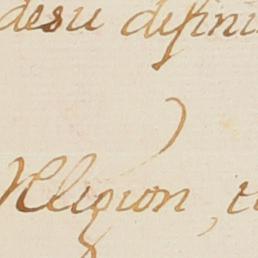 desu difini
Religion, t